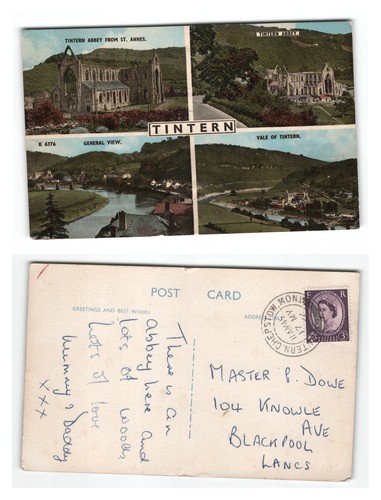 TINTERN ABBEY FROM ST. ANNES.
TINTERN ABBEY.
TINTERN
K 6576
GENERAL VIEW.
VALE OF TINTERN.
POST CARD
GREETINGS AND BEST WISHES
There is an
abbey here and
lots of woods
lots of love
Mummy & Daddy
xxx
TINTERN CHEPSTOW MON
11 AM
17 MY
MASTER P. DOWE
104 KNOWLE
AVE
BLACKPOOL
LANCS